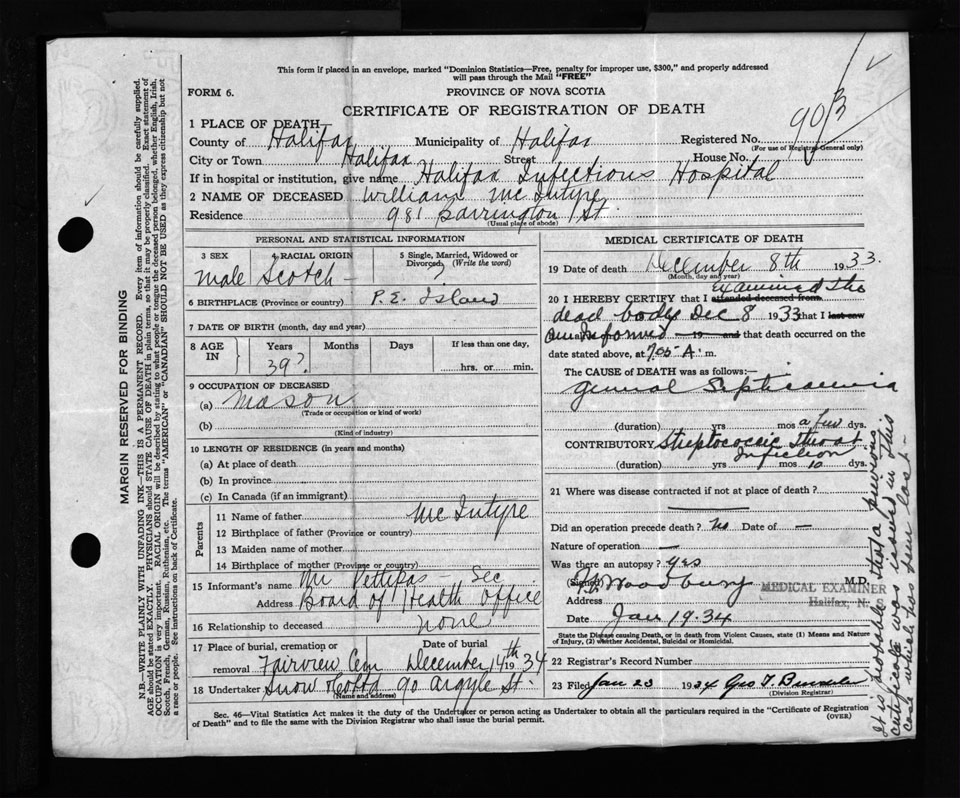 This form if placed in an envelope, marked "Dominion Statistics—Free, penalty for improper use, $300," and properly addressed
will pass through the Mail "FREE"
FORM 6.
PROVINCE OF NOVA SCOTIA
CERTIFICATE OF REGISTRATION OF DEATH
1 PLACE OF DEATH—
County of Halifax Municipality of Halifax Registered No.
(For use of Registrar General only)
City or Town Halifax Street House No.
If in hospital or institution, give name Halifax Infectious Hospital
2 NAME OF DECEASED William McIntyre
Residence 981 Barrington St.
(Usual place of abode)
PERSONAL AND STATISTICAL INFORMATION
3 SEX 4 RACIAL ORIGIN 5 Single, Married, Widowed or Divorced (Write the word)
male Scotch ?
6 BIRTHPLACE (Province or country) P.E. Island
7 DATE OF BIRTH (month, day and year)
8 AGE IN Years Months Days If less than one day,
39? hrs. or min.
9 OCCUPATION OF DECEASED
(a) Mason
(Trade or occupation or kind of work)
(b)
(Kind of industry)
10 LENGTH OF RESIDENCE (in years and months)
(a) At place of death
(b) In province
(c) In Canada (if an immigrant)
Parents
11 Name of father McIntyre
12 Birthplace of father (Province or country)
13 Maiden name of mother
14 Birthplace of mother (Province or country)
15 Informant's name Mr Pettipas – Sec
Address Board of Health Office
16 Relationship to deceased none
17 Place of burial, cremation or Date of burial
removal Fairview Cem December 14th 1934
18 Undertaker Snow & Co Ltd 90 Argyle St.
(Name and address)
MEDICAL CERTIFICATE OF DEATH
19 Date of death December 8th 1933.
(Month, day and year)
examined the
20 I HEREBY CERTIFY that I attended deceased from
dead body Dec 8 1933 that I last saw
am Informed 19 and that death occurred on the
date stated above, at 7.05 A. m.
The CAUSE of DEATH was as follows:—
General Septicaemia
(duration) yrs mos a few dys.
CONTRIBUTORY Streptococcic Throat
Infection
(duration) yrs mos 10 dys.
21 Where was disease contracted if not at place of death?
Did an operation precede death? No Date of —
Nature of operation —
Was there an autopsy? yes
(Signed) Woodbury M.D.
MEDICAL EXAMINER
Address Halifax, N.
Date Jan 19.34
State the Disease causing Death, or in death from Violent Causes, state (1) Means and Nature
of Injury, (2) whether Accidental, Suicidal or Homicidal.
22 Registrar's Record Number
23 Filed Jan 23 1934 Geo T.
(Division Registrar)
Sec. 46—Vital Statistics Act makes it the duty of the Undertaker or person acting as Undertaker to obtain all the particulars required in the "Certificate of Registration
of Death" and to file the same with the Division Registrar who shall issue the burial permit.
(OVER)
MARGIN RESERVED FOR BINDING
N.B.—WRITE PLAINLY WITH UNFADING INK—THIS IS A PERMANENT RECORD. Every item of information should be carefully supplied.
AGE should be stated EXACTLY. PHYSICIANS should STATE CAUSE OF DEATH in plain terms, so that it may be properly classified. Exact statement of
OCCUPATION is very important. RACIAL ORIGIN will be described by stating to what people or tongue the deceased person belonged, whether English, Irish,
Scotch, French, German, Russian, Ruthenian, etc. The terms "AMERICAN" or "CANADIAN" SHOULD NOT BE USED as they express citizenship but not
a race or people. See instructions on back of Certificate.
It is probable that a previous
certificate was issued in this
case which has been lost –